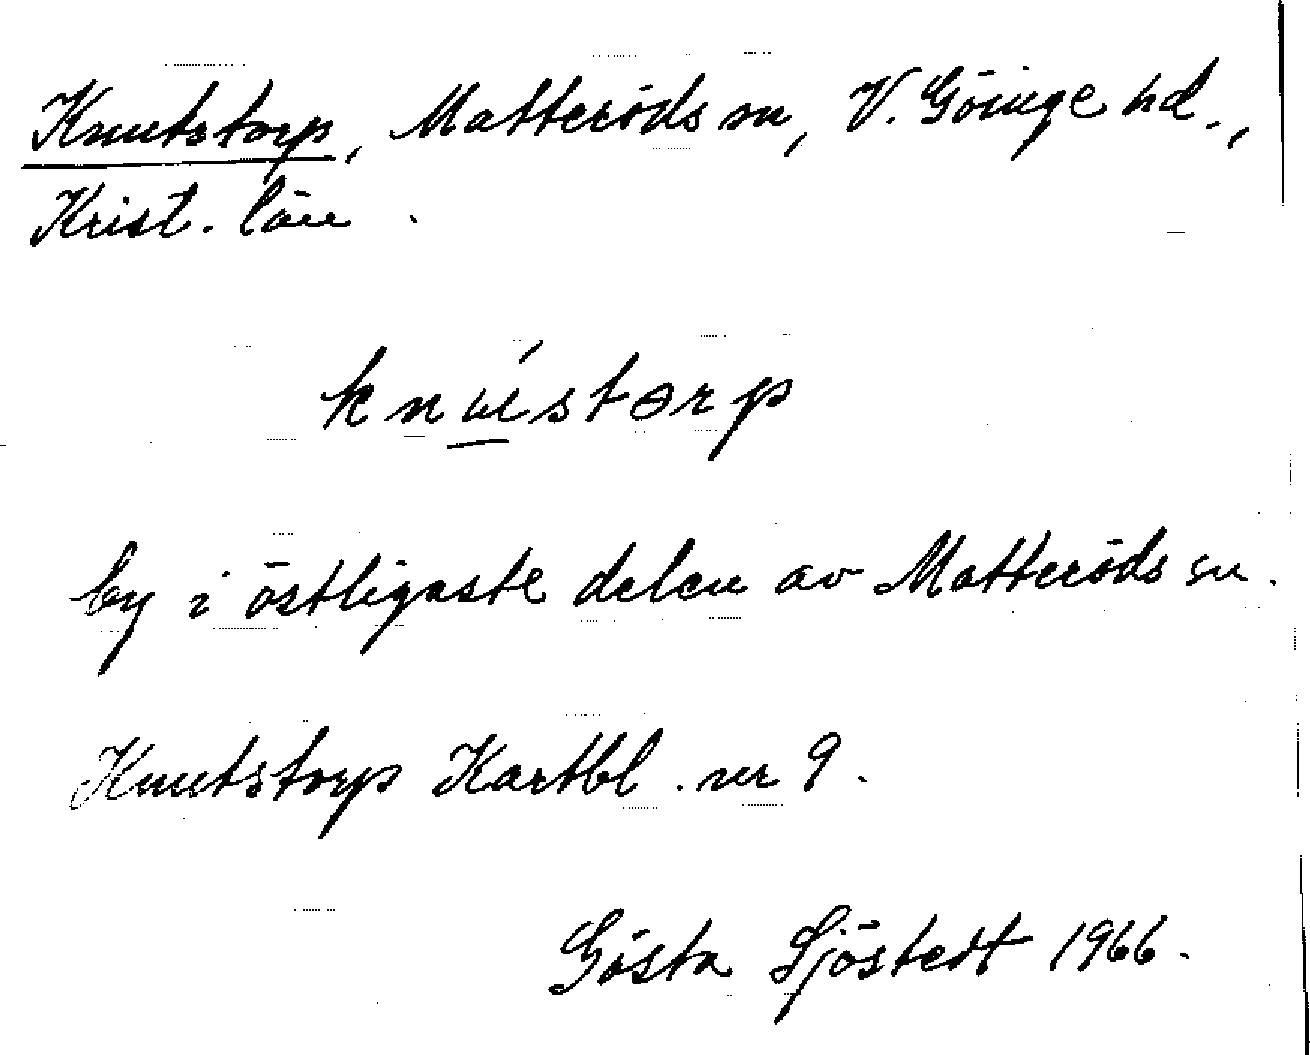 Knutstorp, Matteröds sn, V. Göinge hd.,
Krist. län.
knústɵrp
by i östligaste delen av Matteröds sn.
Knutstorp Kartbl. nr 9.
Gösta Sjöstedt 1966.